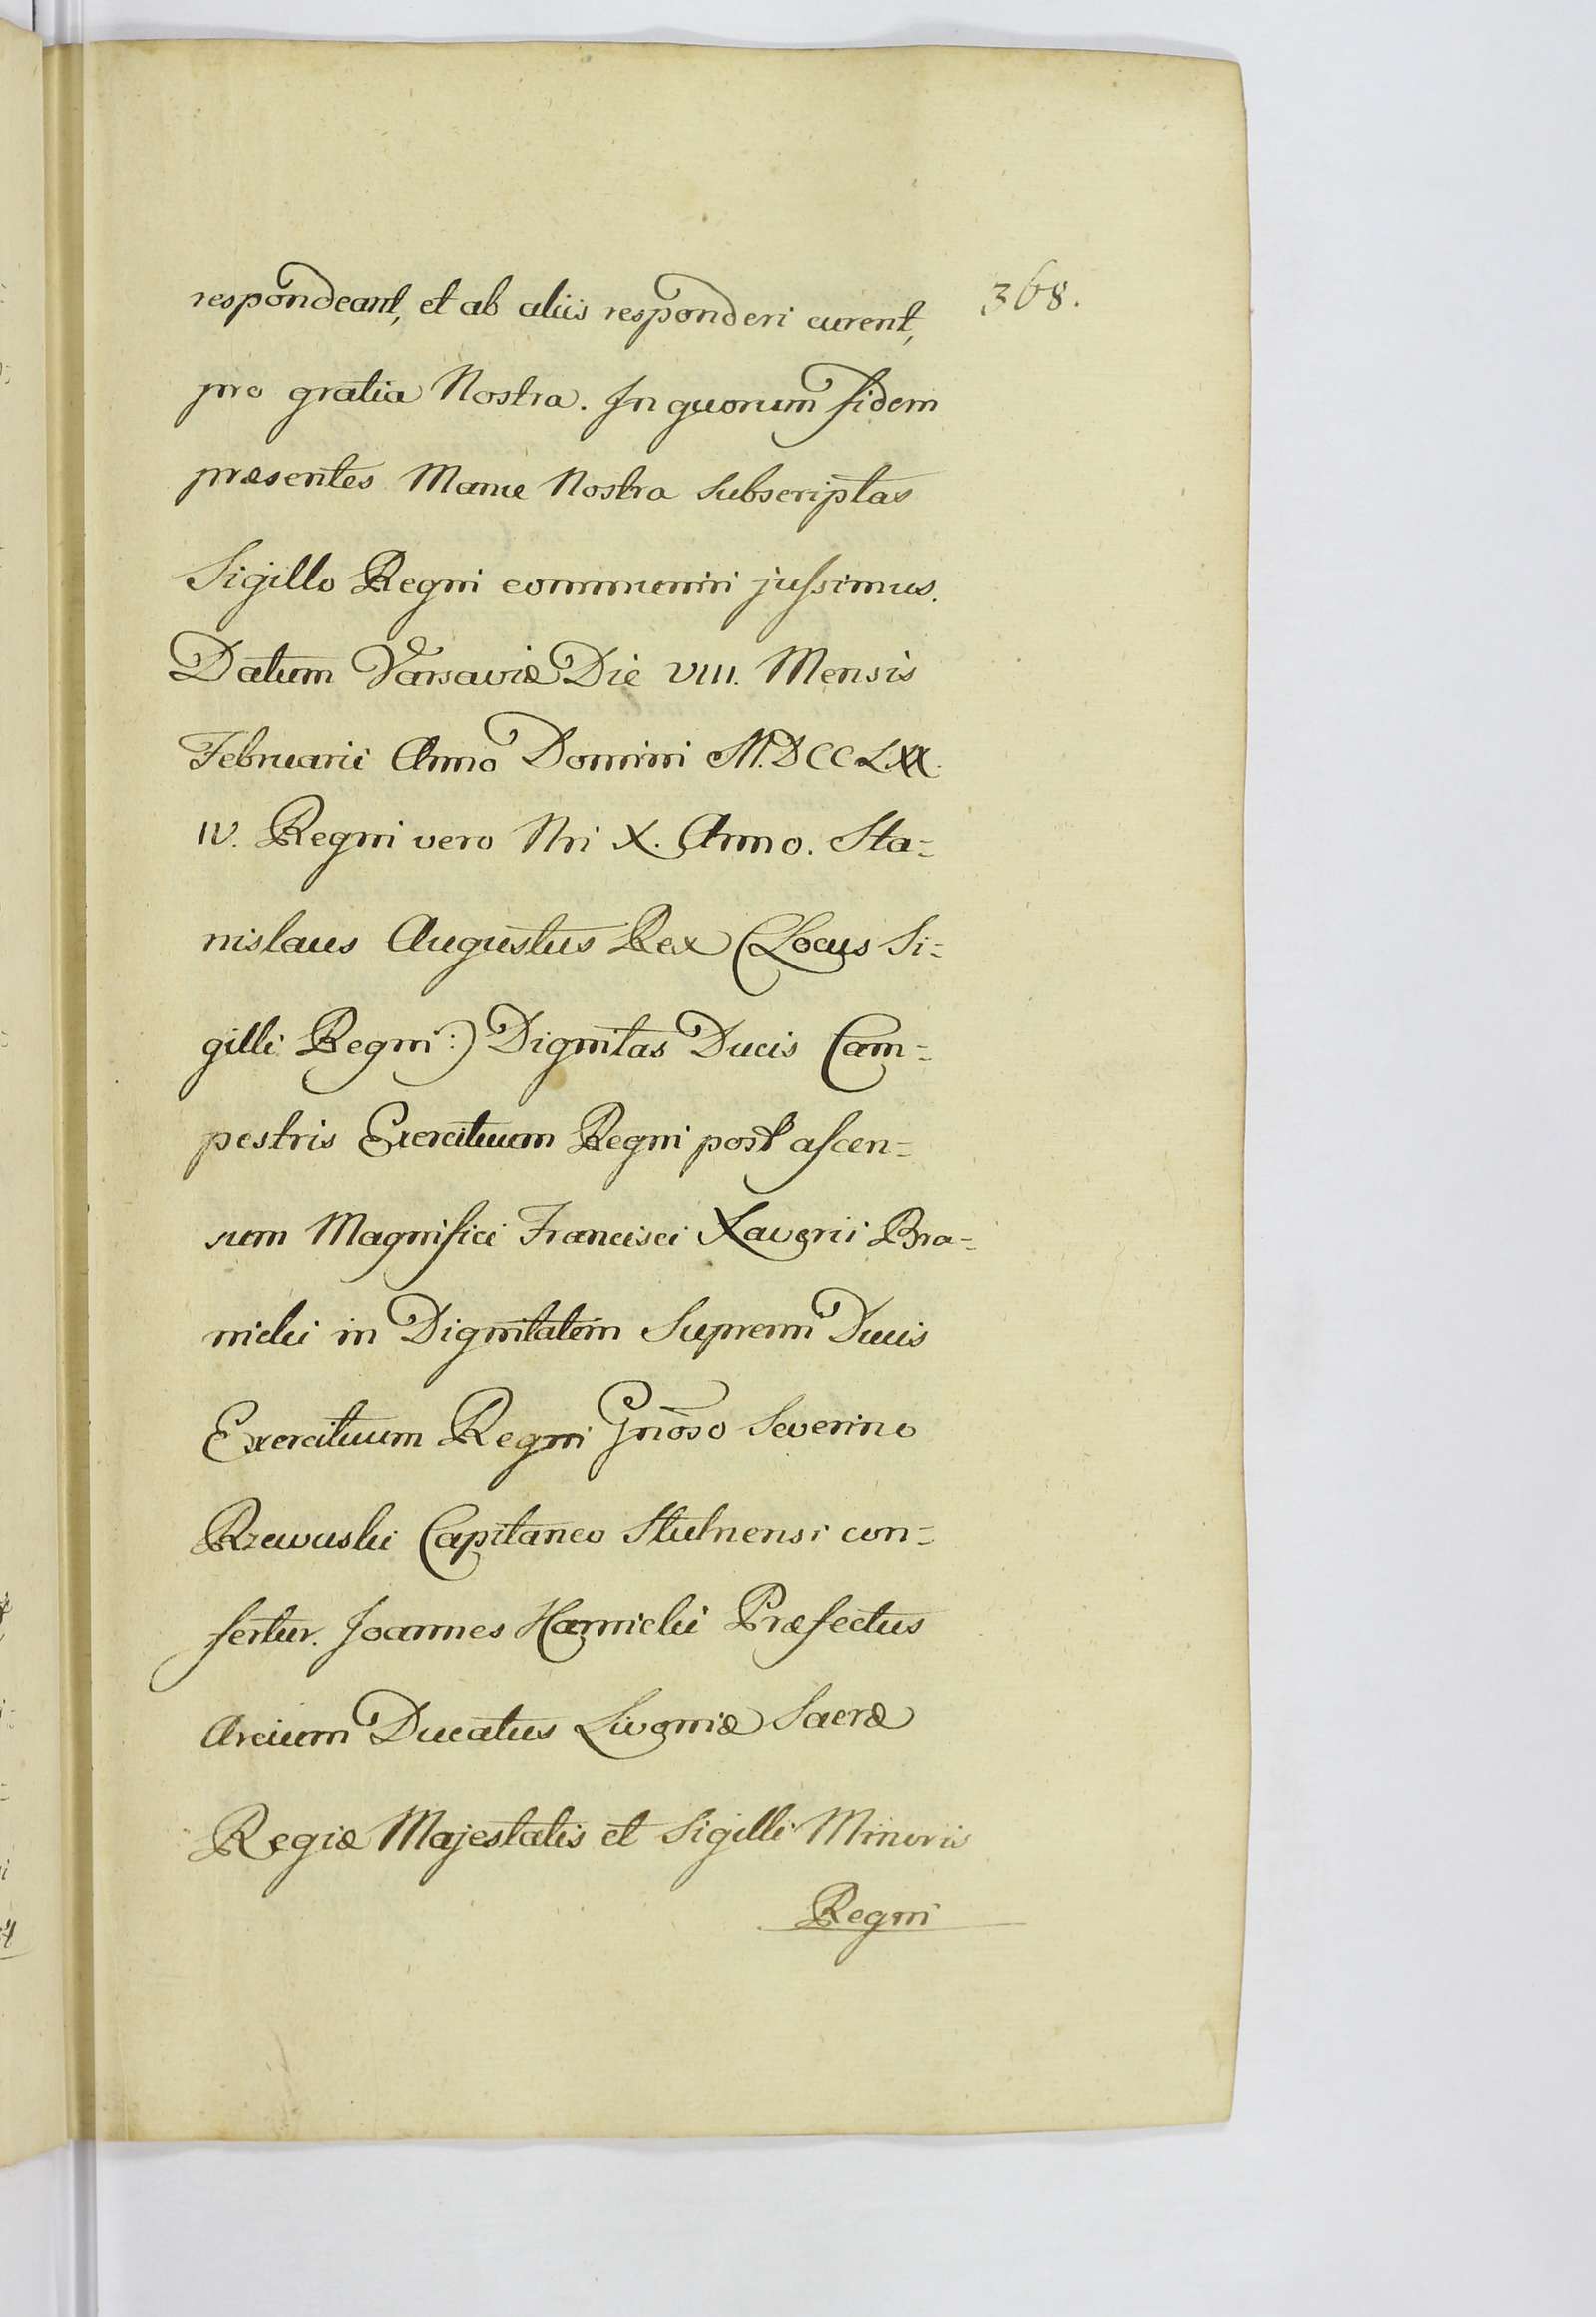 respondeant, et ab aliis responderi curent,
368.
pro gratia Nostra. In quorum fidem
præsentes Manu Nostra subscriptas
Sigillo Regni communiri jussimus.
Datum Varsaviæ Die VIII. Mensis
Februarii Anno Domini M.DCCLXX.
IV. Regni vero Nri X. Anno. Sta=
nislaus Augustus Rex (Locus Si=
gilli Regni:) Dignitas Ducis Cam=
pestris Exercituum Regni post ascen=
sum Magnifici Francisci Xaverii Bra=
nicki in Dignitatem Supremi Ducis
Exercituum Regni Gnõso Severino
Rzewuski Capitaneo Stulnensi con=
fertur. Joannes Harnicki Præfectus
Arcium Ducatus Livoniæ Sacræ
Regiæ Majestatis et Sigilli Minoris
Regni